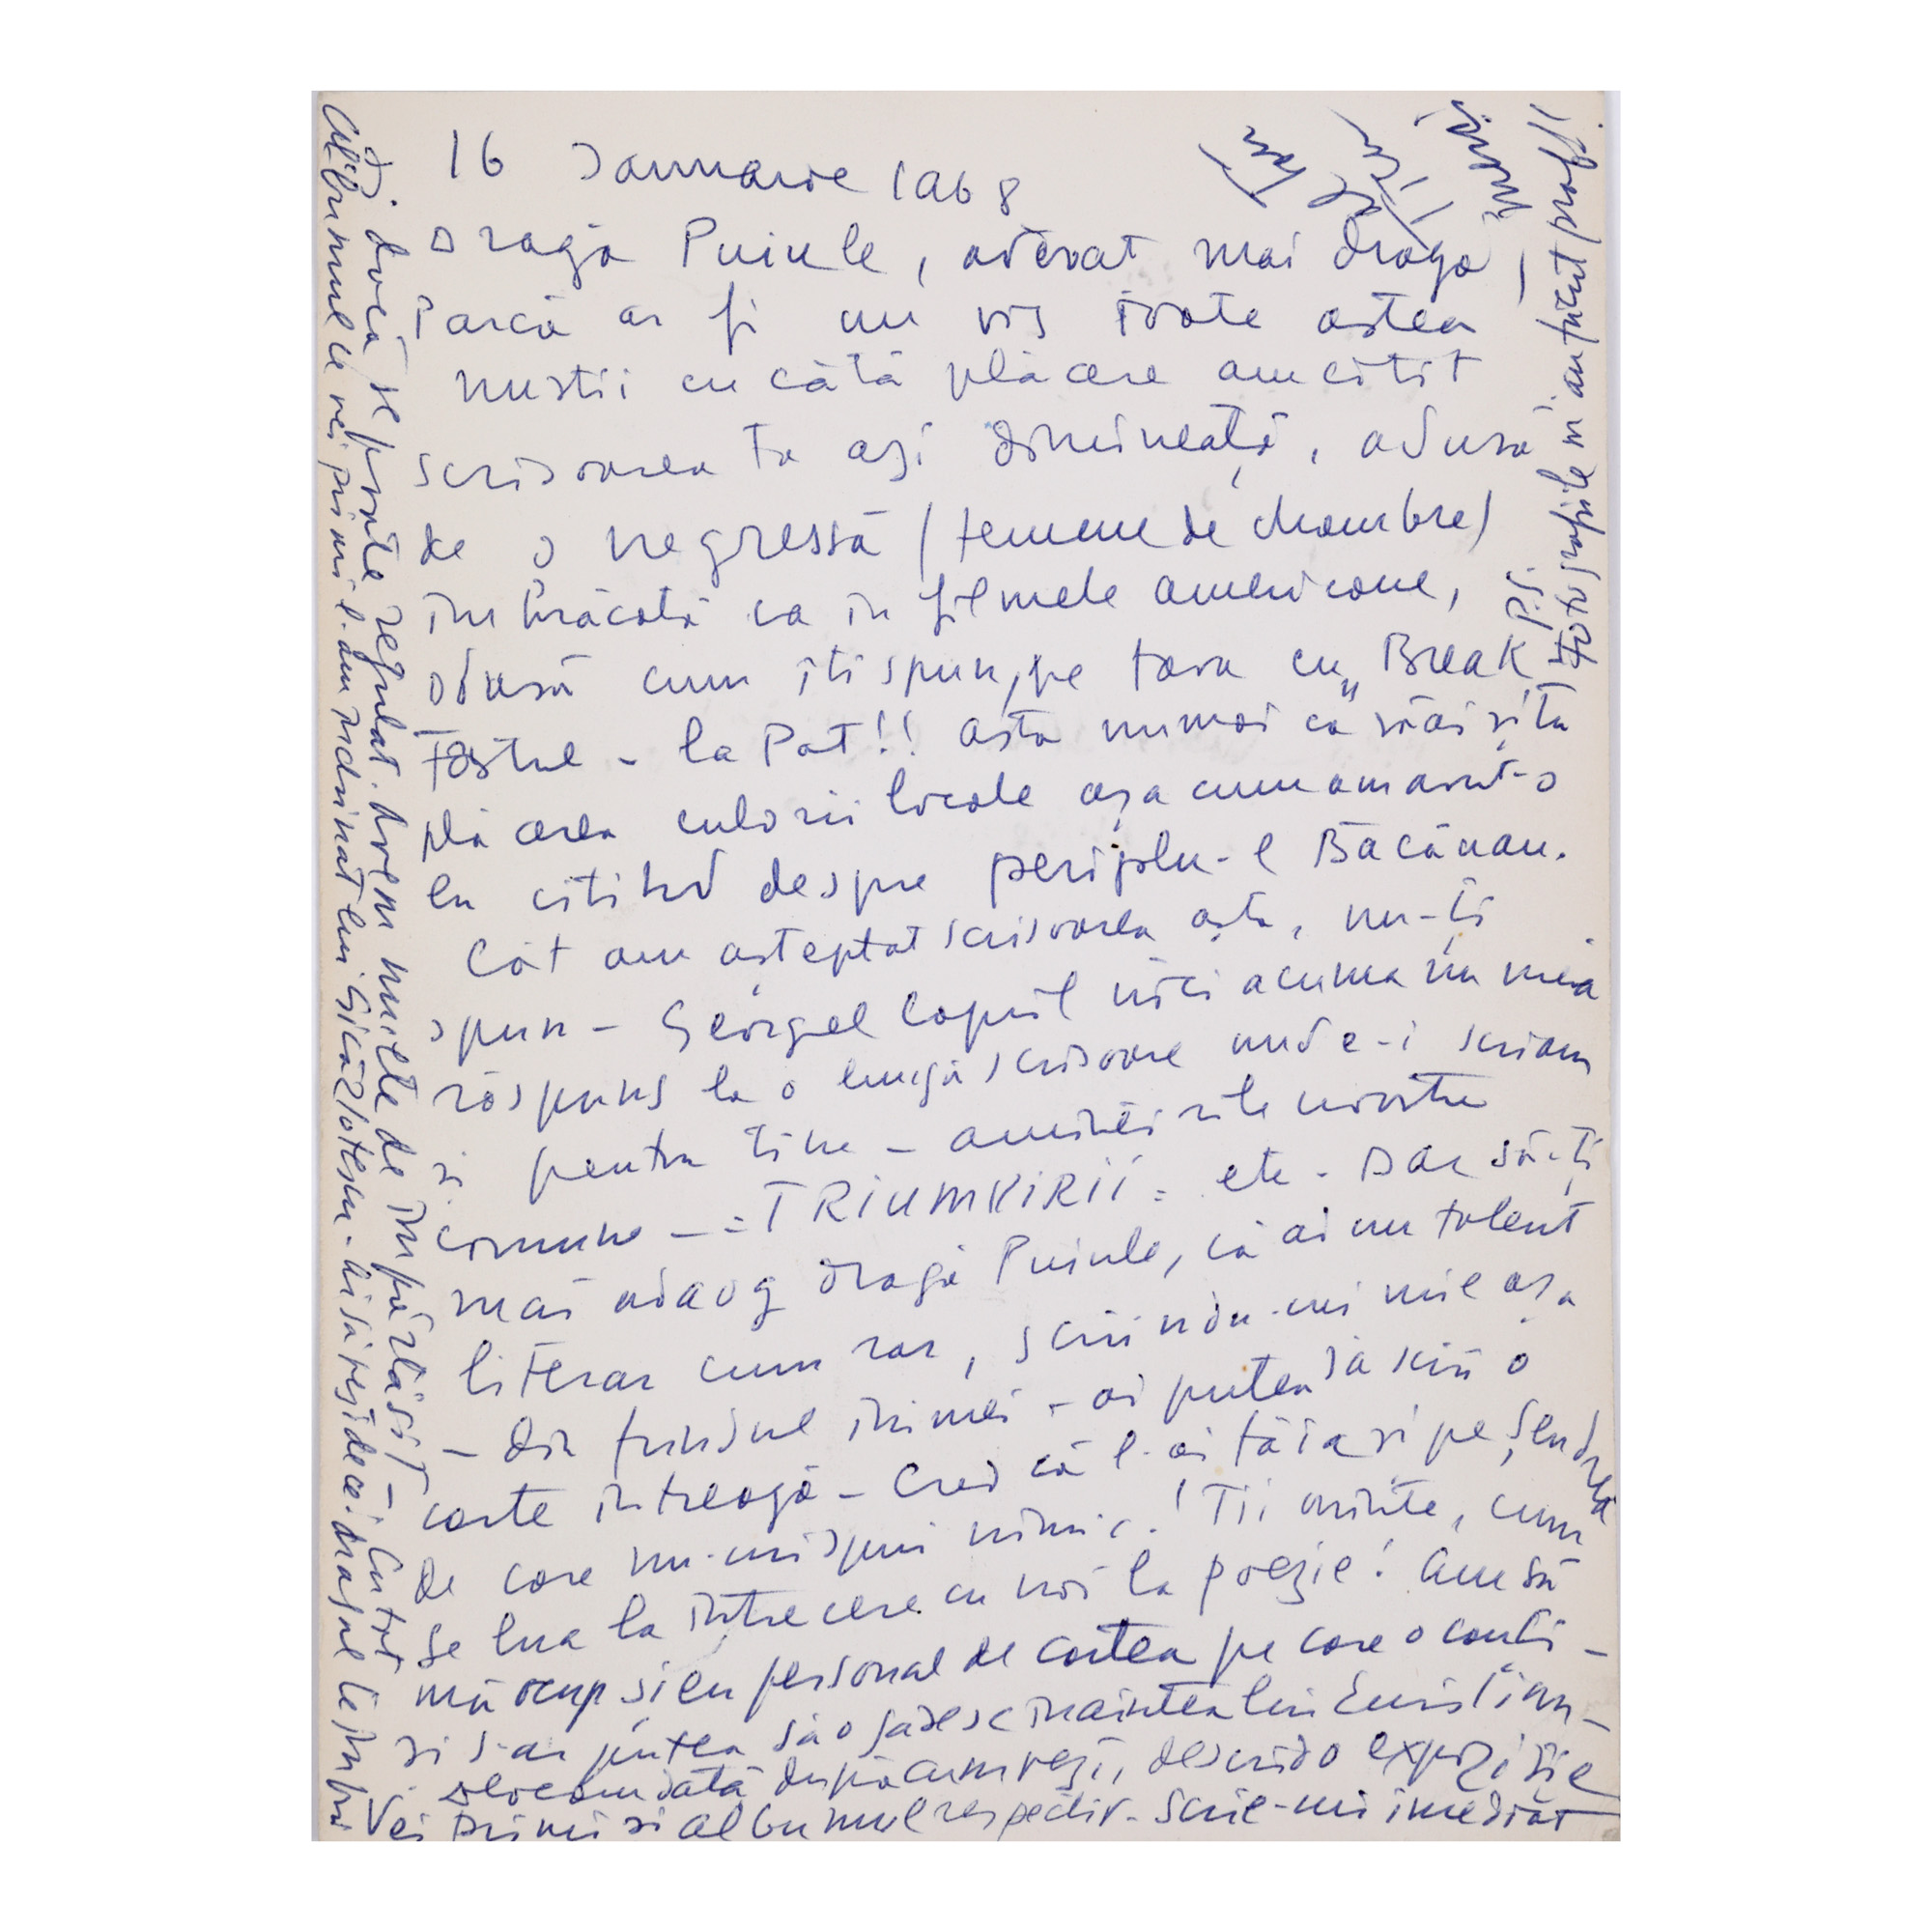 16 Ianuarie 1968
Dragă Puiule, adevărat mai dragă,
Parcă ar fi un vis toate astea
nu stii cu câtă plăcere am citit
scrisoarea ta azi dimineață, adusă
de o negressă (femme de chambre)
îmbrăcată ca in filmele americane,
adusă cum îti spun, pe tava cu „Break
fastul - la Pat!! Asta numai ca să ai și tu
plăcerea culorii locale așa cum am avut-o
eu citind despre periplu-l Băcăuan.
Cât am așteptat scrisoarea asta, nu-ți
spun - Georgel Copil nici acuma nu mi-a
răspuns la o lungă scrisoare unde-i scriam
si pentru tine - amintirile noastre
comune - = TRIUMVIRII = etc - Dar să-ți
mai adaog dragă Puiule, că ai un talent
literar cum rar, scriindu-mi mie așa
- din fundul inimei - ai putea să scrii o
carte intreagă - Cred că l-ai tăia si pe Șendrea
de care nu-mi spui nimic! Tii minte, cum
se lua la intrecere cu noi la poezie! Am să
mă ocup și eu personal de cartea pe care o cauti -
si s-ar putea să o găsesc inaintea lui
Deocamdată după cum vezi, deschid o expoziție
Vei primi si albumul respectiv - Scrie-mi imediat
si dacă se poate regulat. Avem multe de impărtășit - Cu tot
Albumul ce vei primi l-am inchinat lui Gică Zlotescu -
fotografiile mi-au făcut prof!!